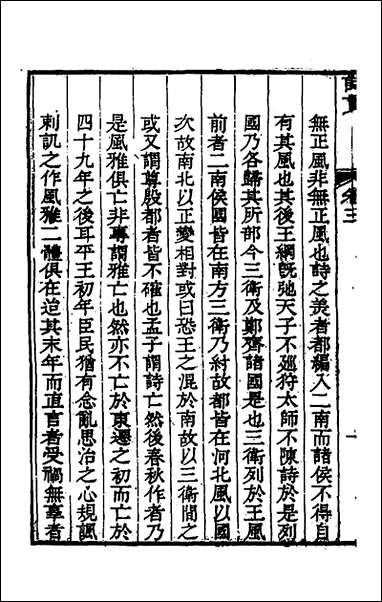 無正風非無正風也詩之美者都編入二南而諸侯不得自
有其風也其後王綱旣弛天子不廵狩太師不陳詩於是列
國乃各歸其所部今三衛及鄭齊諸國是也三衛列於王風
前者二南侯國皆在南方三衛乃紂故都皆在河北風以國
次故南北以正變相對或曰恐王之混於南故以三衛間之
或又謂尊殷都者皆不確也孟子謂詩亡然後春秋作者乃
是風雅俱亡非專謂雅亡也然亦不亡於東遷之初而亡於
四十九年之後耳平王初年臣民猶有念亂思治之心規諷
刺譏之作風雅二體俱在迨其末年而直言者受禍無辜者
卷三